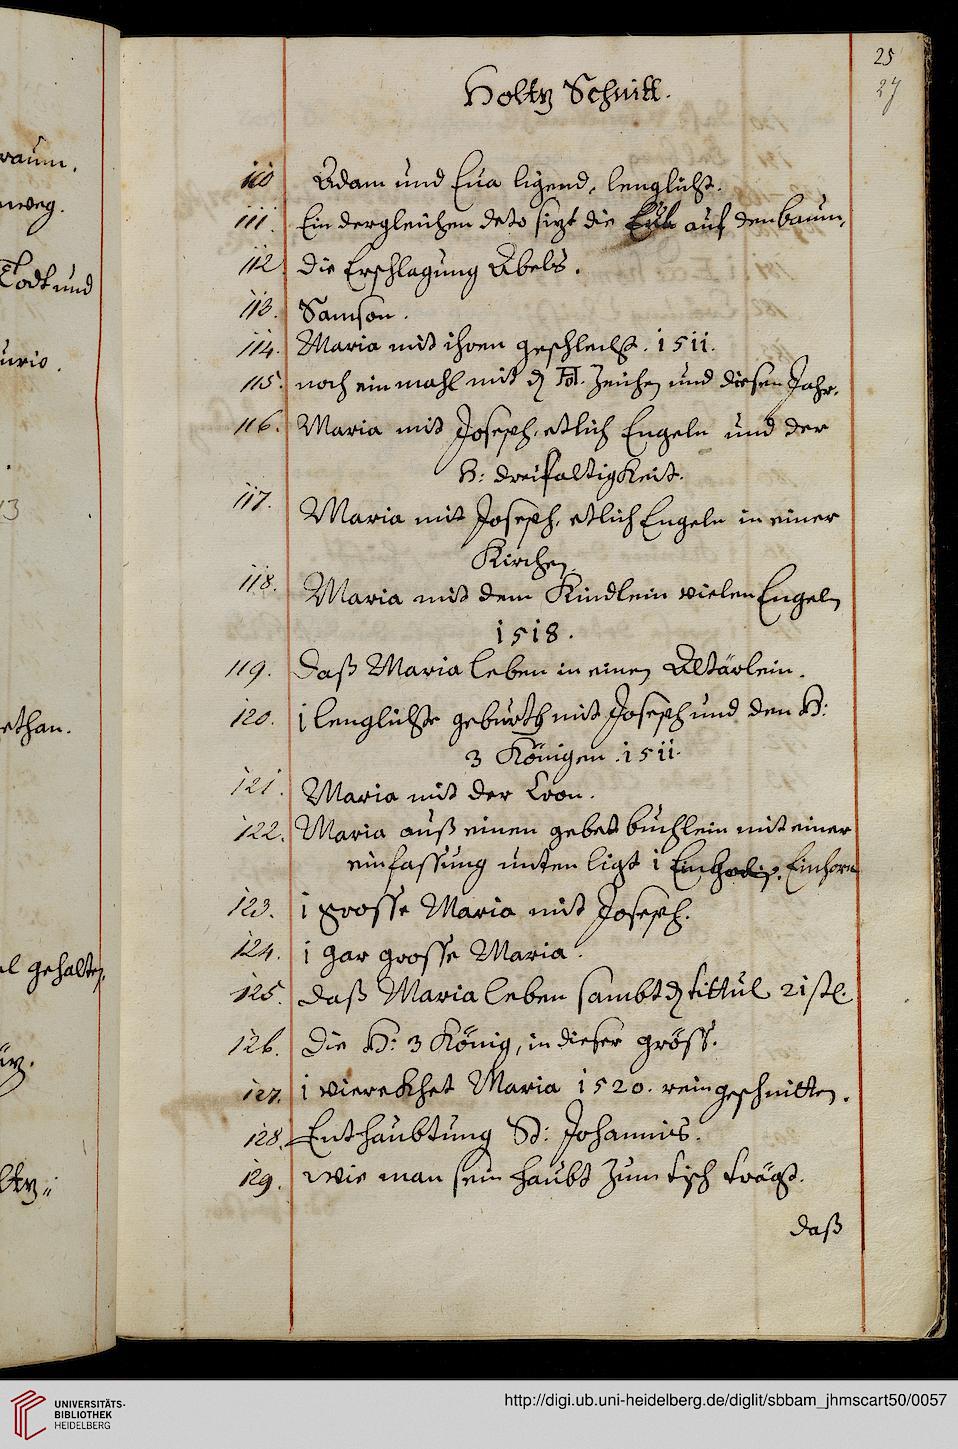 raum.
weg.
Todt und
urio.
13
ethan.
el gehalten.
ltz
25
27
Holtz Schnitt.
110 Adam und Eua ligend, lenglicht.
111. Ein dergleichen deto sizt die Eül auf den baum,
112. die Erschlagung Abels.
113. Samson.
114. Maria mit ihren geschlecht. 1511.
115. noch ein mahl mit Zeichen und diesen Jahr.
116. Maria mit Joseph, etlich Engeln und der
H: dreifaltigkeit.
117. Maria mit Joseph, etlich Engeln in einer
Kirchen
118. Maria mit dem Kindlein vielen Engeln
1518.
119. daß Maria leben in einen Altärlein.
120. 1 lenglichte geburth mit Joseph und den H:
3 Königen. 1511.
121. Maria mit der Cron.
122. Maria auß einen gebet büchlein mit einer
einfassung unten ligt 1 Einhorn
123. 1 grosse Maria mit Joseph.
124. 1 gar grosse Maria.
125. daß Maria leben sambt tittul 21 stl.
126. Die H: 3 König, in dieser gröss.
127. 1 vierekhet Maria 1520. rein geschnitten.
128. Enthaubtung St: Johannis.
129. wie man sein haubt zum tisch trägt.
daß
UNIVERSITÄTS-
BIBLIOTHEK
HEIDELBERG
http://digi.ub.uni-heidelberg.de/diglit/sbbam_jhmscart50/0057